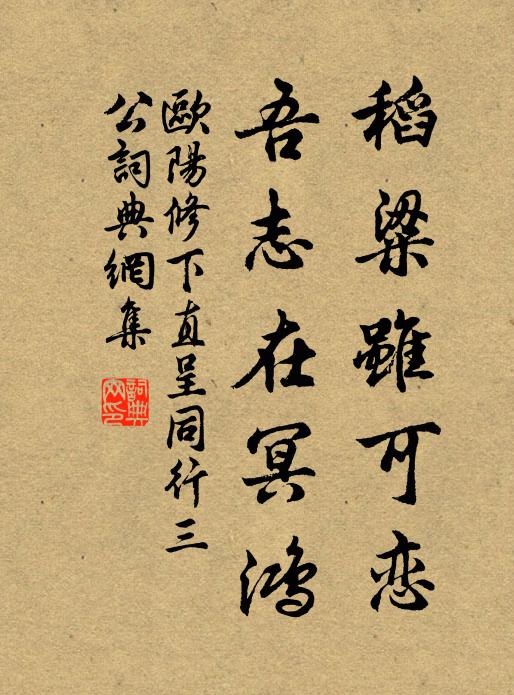 稻粱雖可恋
吾志在冥鴻
歐陽修下直呈同行三
公詞典網集
詞典网印